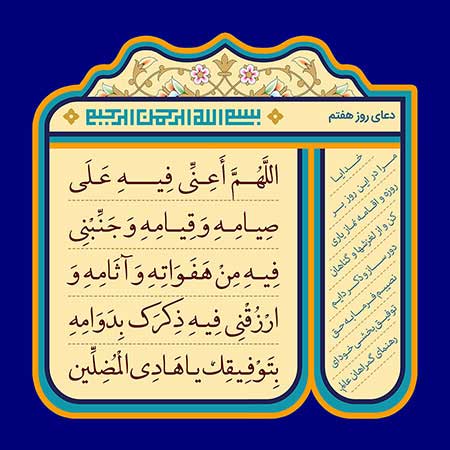 دعای روز هفتم
بسم الله الرحمن الرحیم
اللَّهُمَّ أَعِنِّی فِیهِ عَلَی
صِیامِهِ وَ قِیامِهِ وَ جَنِّبْنِی
فِیهِ مِنْ هَفَوَاتِهِ وَ آثَامِهِ وَ
ارْزُقْنِی فِیهِ ذِکرَک بِدَوَامِهِ
بِتَوْفِیقِك یا هَادِی الْمُضِلِّین
خدایا
مرا در این روز بر
روزه و اقامه نماز یاری
کن و از لغزشها و گناهان
دور ساز و ذکر دایم
نصیبم فرما به حق
توفیق بخشی خود ای
رهنمای گمراهان عالم